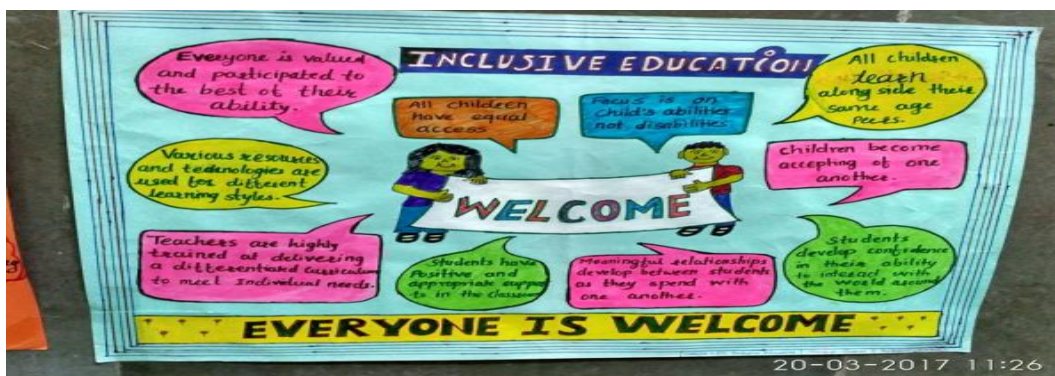 INCLUSIVE EDUCATION
Everyone is valued
and participated to
the best of their
ability.
All children
have equal
access
Focus is on
child's abilities
not disabilities.
All children
learn
along side their
same age
peers.
Various resources
and technologies are
used for different
learning styles.
children become
accepting of one
another.
WELCOME
Teachers are highly
trained at delivering
a differentiated curriculum
to meet Individual needs.
Students have
Positive and
appropriate suppor
ts in the classroom
Meaningful relationships
develop between students
as they spend with
one another.
Students
develop confidence
in their ability
to interact with
the world around
them.
EVERYONE IS WELCOME
20-03-2017 11:26